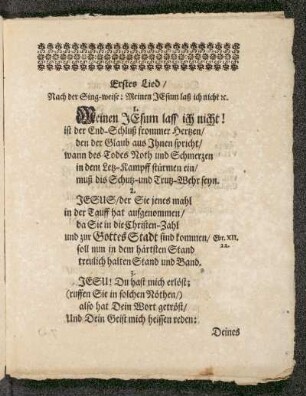 Erstes Lied /
Nach der Sing-weise: Meinen JEsum laß ich nicht ꝛc.
1.
Meinen JEsum lass ich nicht!
ist der End-Schluß frommer Hertzen/
den der Glaub aus Ihnen spricht/
wann des Todes Noth und Schmerzen
in dem Letz-Kampff stürmen ein/
muß dis Schutz-und Trutz-Wehr seyn.
2.
JESUS/ der Sie jenes mahl
in der Tauff hat aufgenommen/
da Sie in die Christen-Zahl
und zur Gottes Stadt sind kommen/
soll nun in dem härtsten Stand
treulich halten Stand und Band.
Hbr. XII.
22.
3.
JESU! Du hast mich erlöst;
(ruffen Sie in solchen Nöthen/)
also hat Dein Wort getröst/
Und Dein Geist mich heissen reden:
Deines